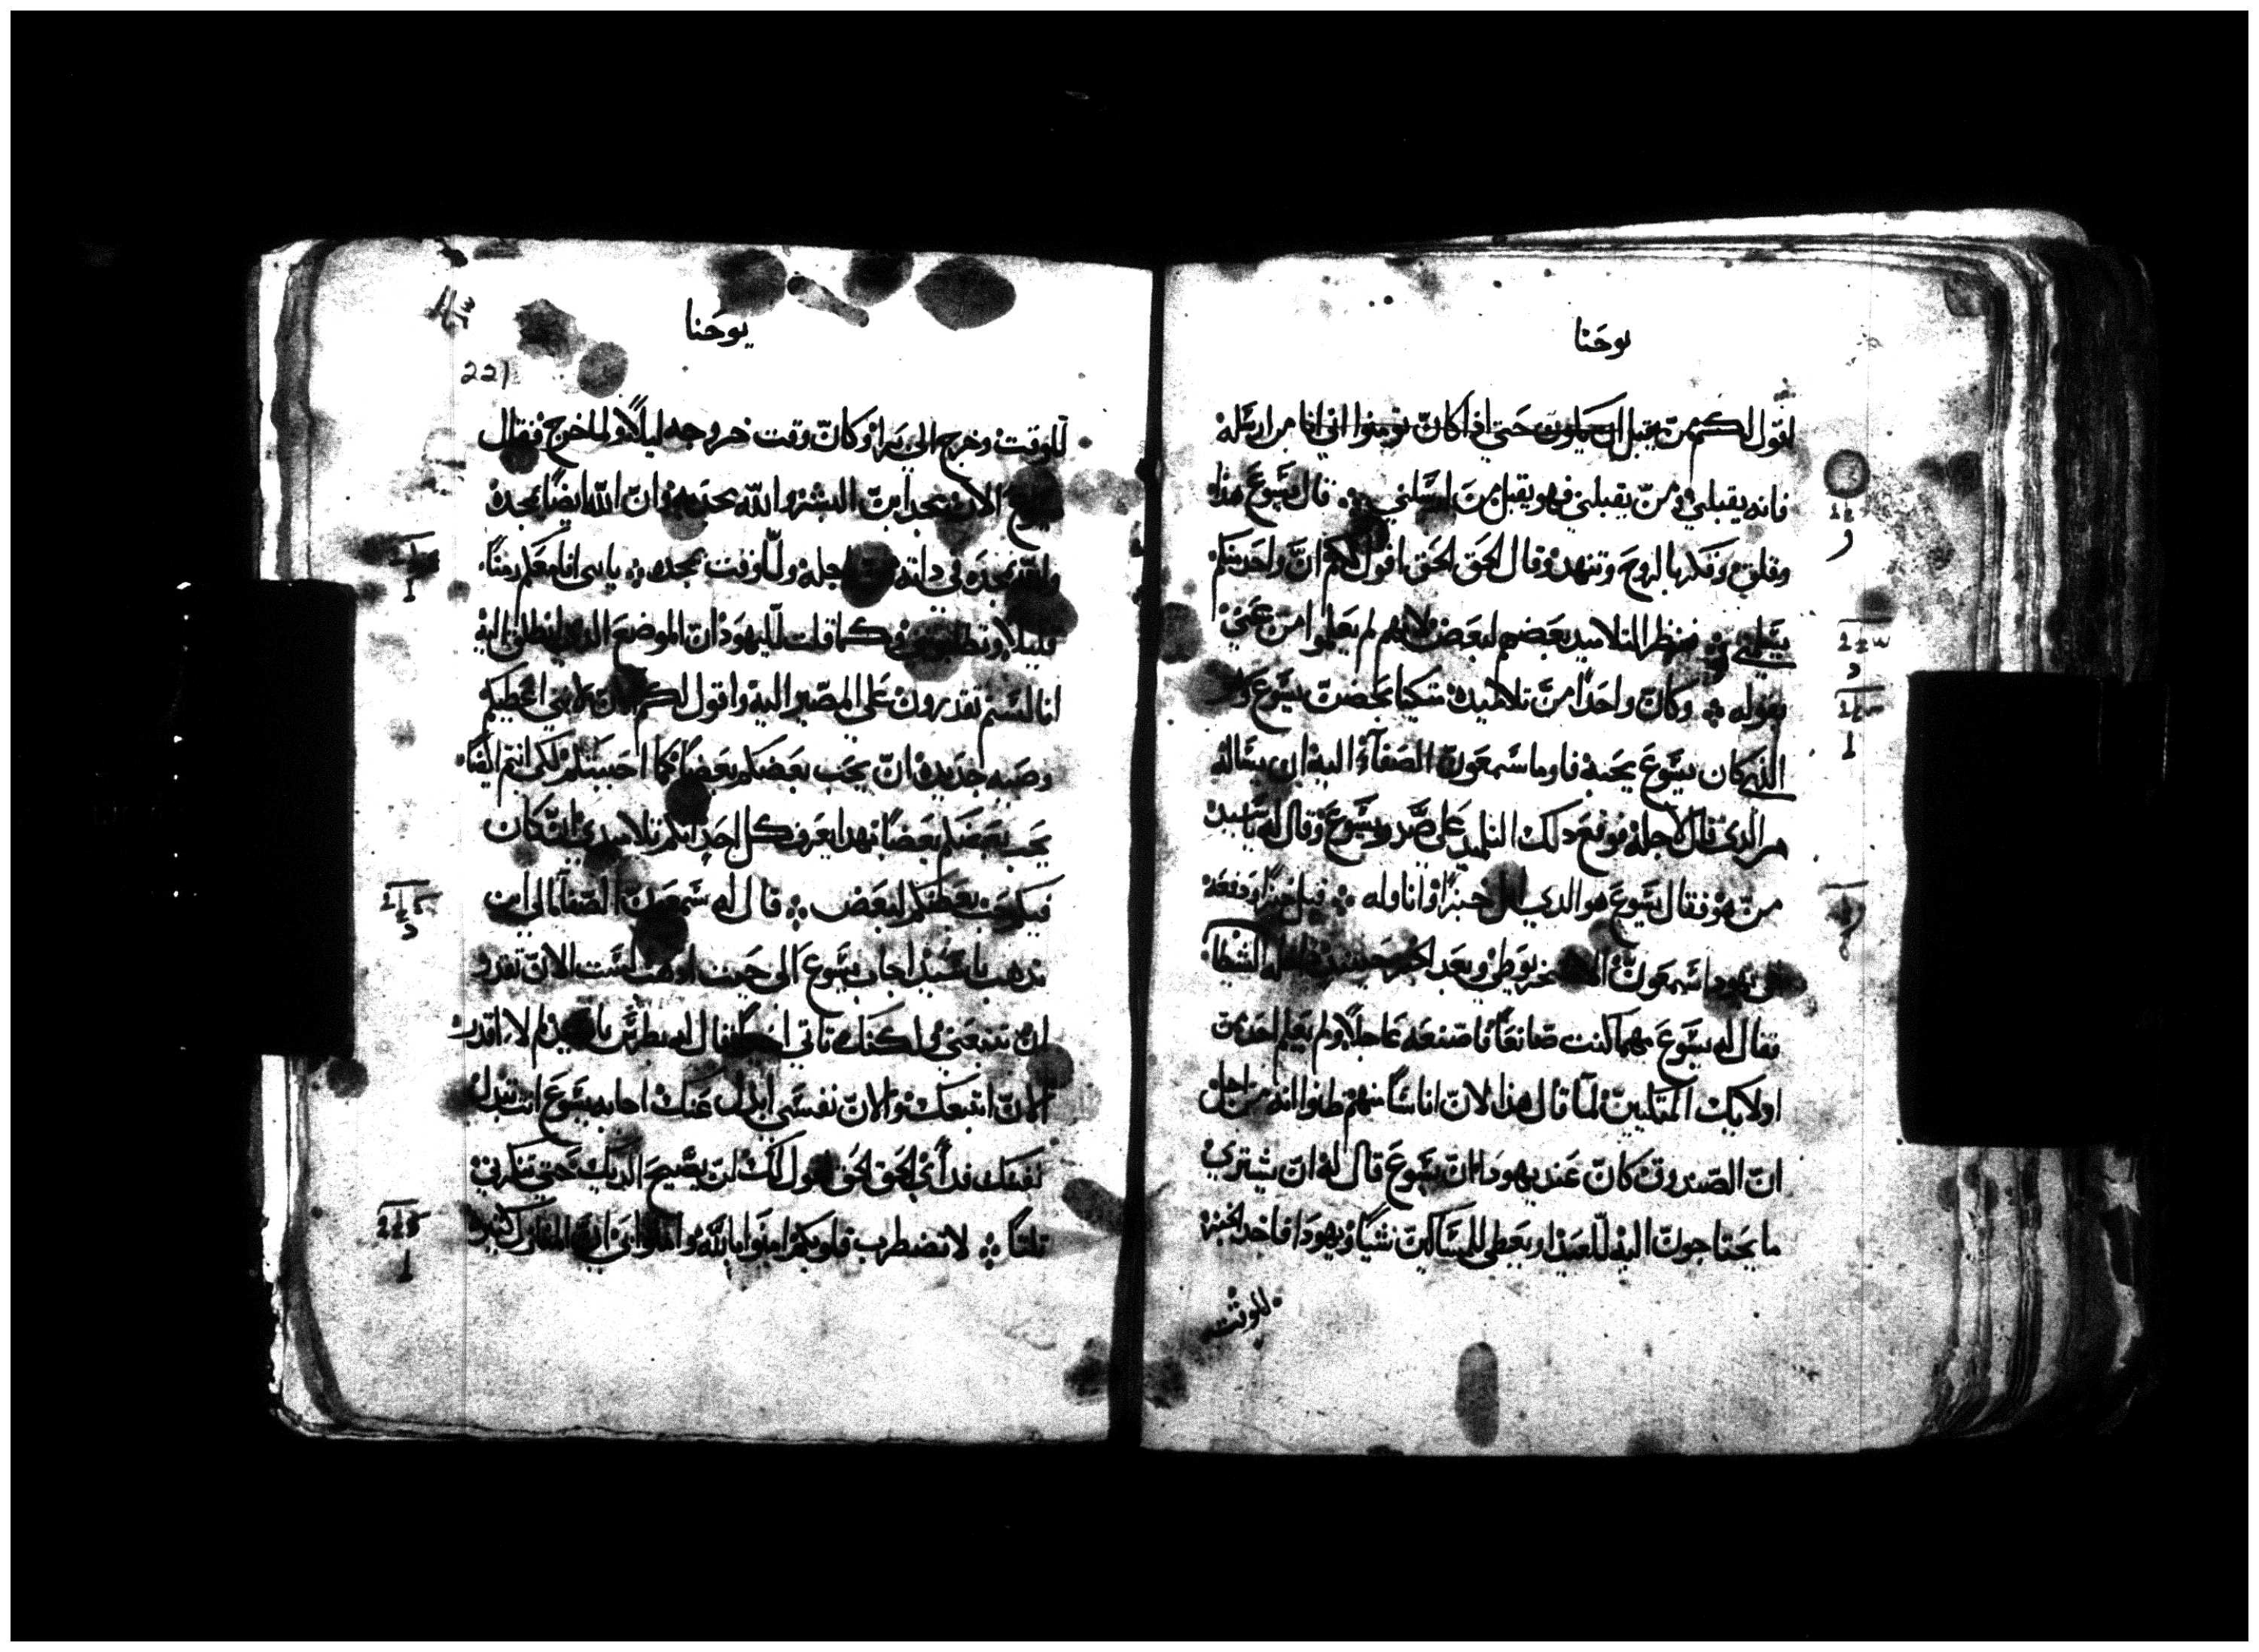 يوحنا
اقول لكم من يقبل حتى اذا كان تومنوا اني انا من ارسله
فانه يقبلني ومن يقبلني فهو يقبل من ارسلني قال يسوع هذا
وقلق بالروح وتنهد وقال الحق الحق اقول لكم ان واحد منكم
يسلمني فنظر التلاميد بعضهم لبعض لانهم لم يعلموا من عني
بقوله وكان واحدا من تلاميده متكيا بحضن يسوع
الذي كان يسوع يحبه فاوما سمعون الصفاء اليه ان يساله
من الذي قال لاجله فوقع دلك التلميد على صدر يسوع وقال له يا سيد
من هو فقال يسوع هو الدي ابل خبزا واناوله فبل خبزا ودفعه
الى يهودا سمعون الاسخريوطي وبعد الخبز حينيد داخله الشيطان
فقال له يسوع مهما كنت صانعا فاصنعه عاجلا ولم يعلم احد من
اولايك المتكيين لما قال هذا لان اناسا منهم ظنوا انه من اجل
ان الصندوق كان عند يهودا ان يسوع قال له ان يشتري
ما يحتاجون اليه للعيد او يعطي للمساكين شيا ويهودا فاخد الخبز
للوقت
يوحنا
221
للوقت وخرج الى برا وكان وقت خروجه ليلا ولما خرج فقال
يسوع الان مجد ابن البشر والله مجد به وان الله ايضا يمجده
والله يمجده في داته اجله وللوقت يمجده يا بني انا معكم زمنا
قليلا وتطلبوني كما قلت لليهود ان الموضع الدي انطلق اليه
انا لستم تقدرون على المصير اليه واقول لكم الان لاني اعطيكم
وصيه جديده ان يحب بعضكم بعضا كما احببتكم لكي انتم ايضا
يحب بعضكم بعضا بهدا يعرف كل احد انكم تلاميدي ان كان
فيكم حب بعضكم لبعض قال له سمعون الصفا الى اين
تدهب يا سيد اجاب يسوع الى حيت ادهب لست الان تقدر
ان تتبعني ولكنك تاتي اخيرا قال له بطرس يا سيد لم لا اقدر
الان اتبعك والان نفسي ابدل عنك اجابه يسوع انت تبدل
نفسك فداي الحق الحق اقول لك لن يصيح الديك حتى تنكرني
تلتا لا تضطرب قلوبكم امنوا بالله وامنوا بي ان المنازل كتيره